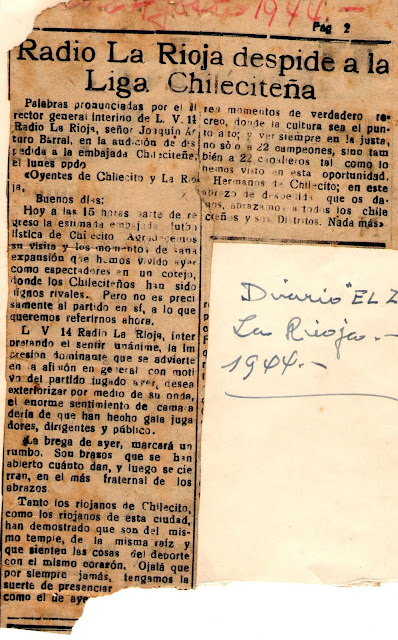 1944.-
Pag 2
Radio La Rioja despide a la
Liga Chileciteña
Palabras pronunciadas por el di
rector general interino de L. V. 14
Radio La Rioja, señor Joaquín Ar
turo Barral, en la audición de des
pedida a la embajada Chileciteña,
el lunes ppdo
«Oyentes de Chilecito y La Rio
ja,
Buenos días:
Hoy a las 15 horas parte de re
greso la estimada embajada futbo
lística de Chilecito Agradecemos
su visita y los momentos de sana
expansión que hemos vivido ayer
como espectadores en un cotejo,
donde los Chileciteños han sido
dignos rivales. Pero no es preci
samente al partido en sí, a lo que
queremos referirnos ahora.
L V 14 Radio La Rioja, inter
pretando el sentir unánime, la im
presión dominante que se advierte
en la afición en general con moti
vo del partido jugado ayer, desea
exteriorizar por medio de su onda,
el enorme sentimiento de camara
dería de que han hecho gala juga
dores, dirigentes y público.
La brega de ayer, marcará un
rumbo. Son brasos que se han
abierto cuánto dan, y luego se cie
rran, en el más fraternal de los
abrazos
Tanto los riojanos de Chilecito,
como los riojanos de esta ciudad,
han demostrado que son del mis
mo temple, de la misma raíz y
que sienten las cosas del deporte
con el mismo corarón. Ojalá que
por siempre jamás, tengamos la
suerte de presenciar
como el de aye
ren momentos de verdadero re
creo, donde la cultura sea el pun
to alto; y ver siempre en la justa,
no sólo a 22 campeones, sino tam
bién a 22 caballeros tal como lo
hemos visto en esta oportunidad.
Hermanos de Chilecito; en este
abrazo de despedida que os da-
mos, abrazamos a todos los chile
citeños y sus Distritos. Nada más»
Diario "EL Z
La Rioja.-
1944.-